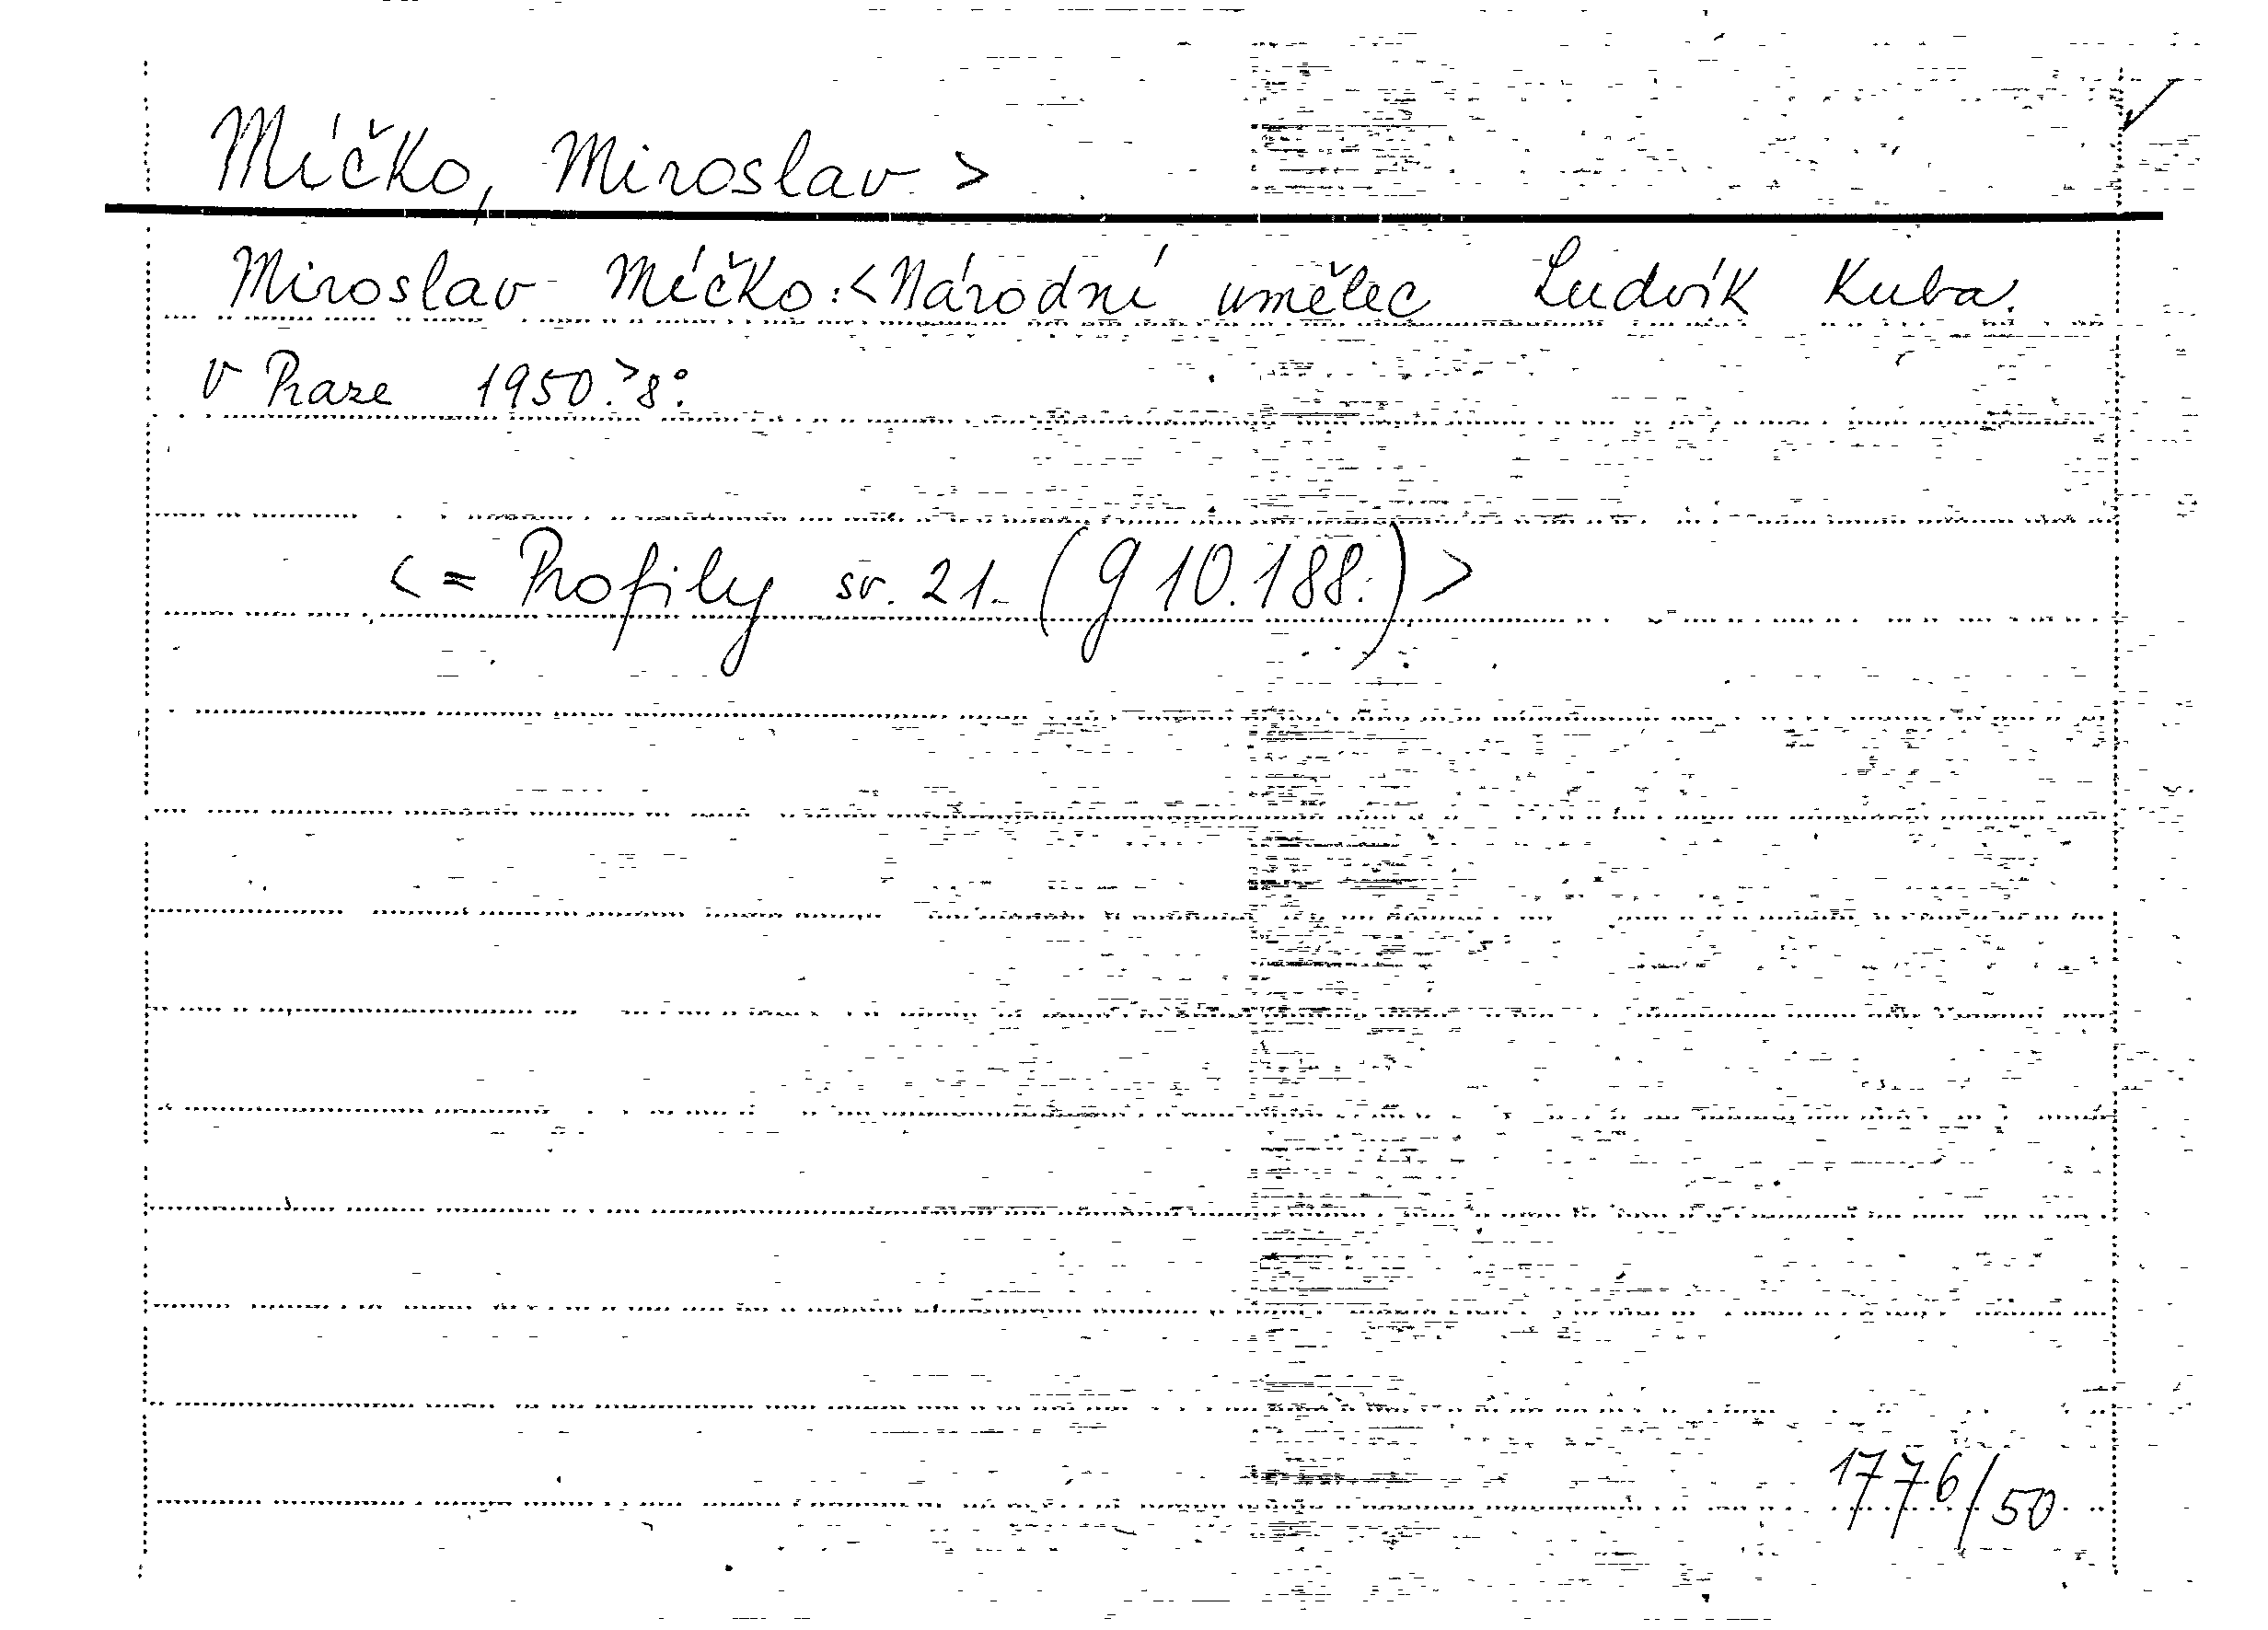 Míčko, Miroslav >
Miroslav Míčko:<Národní umělec Ludvík Kuba.
V Praze 1950.>8°.
<= Profily sv. 21. (g 10.188.)>
1776/50